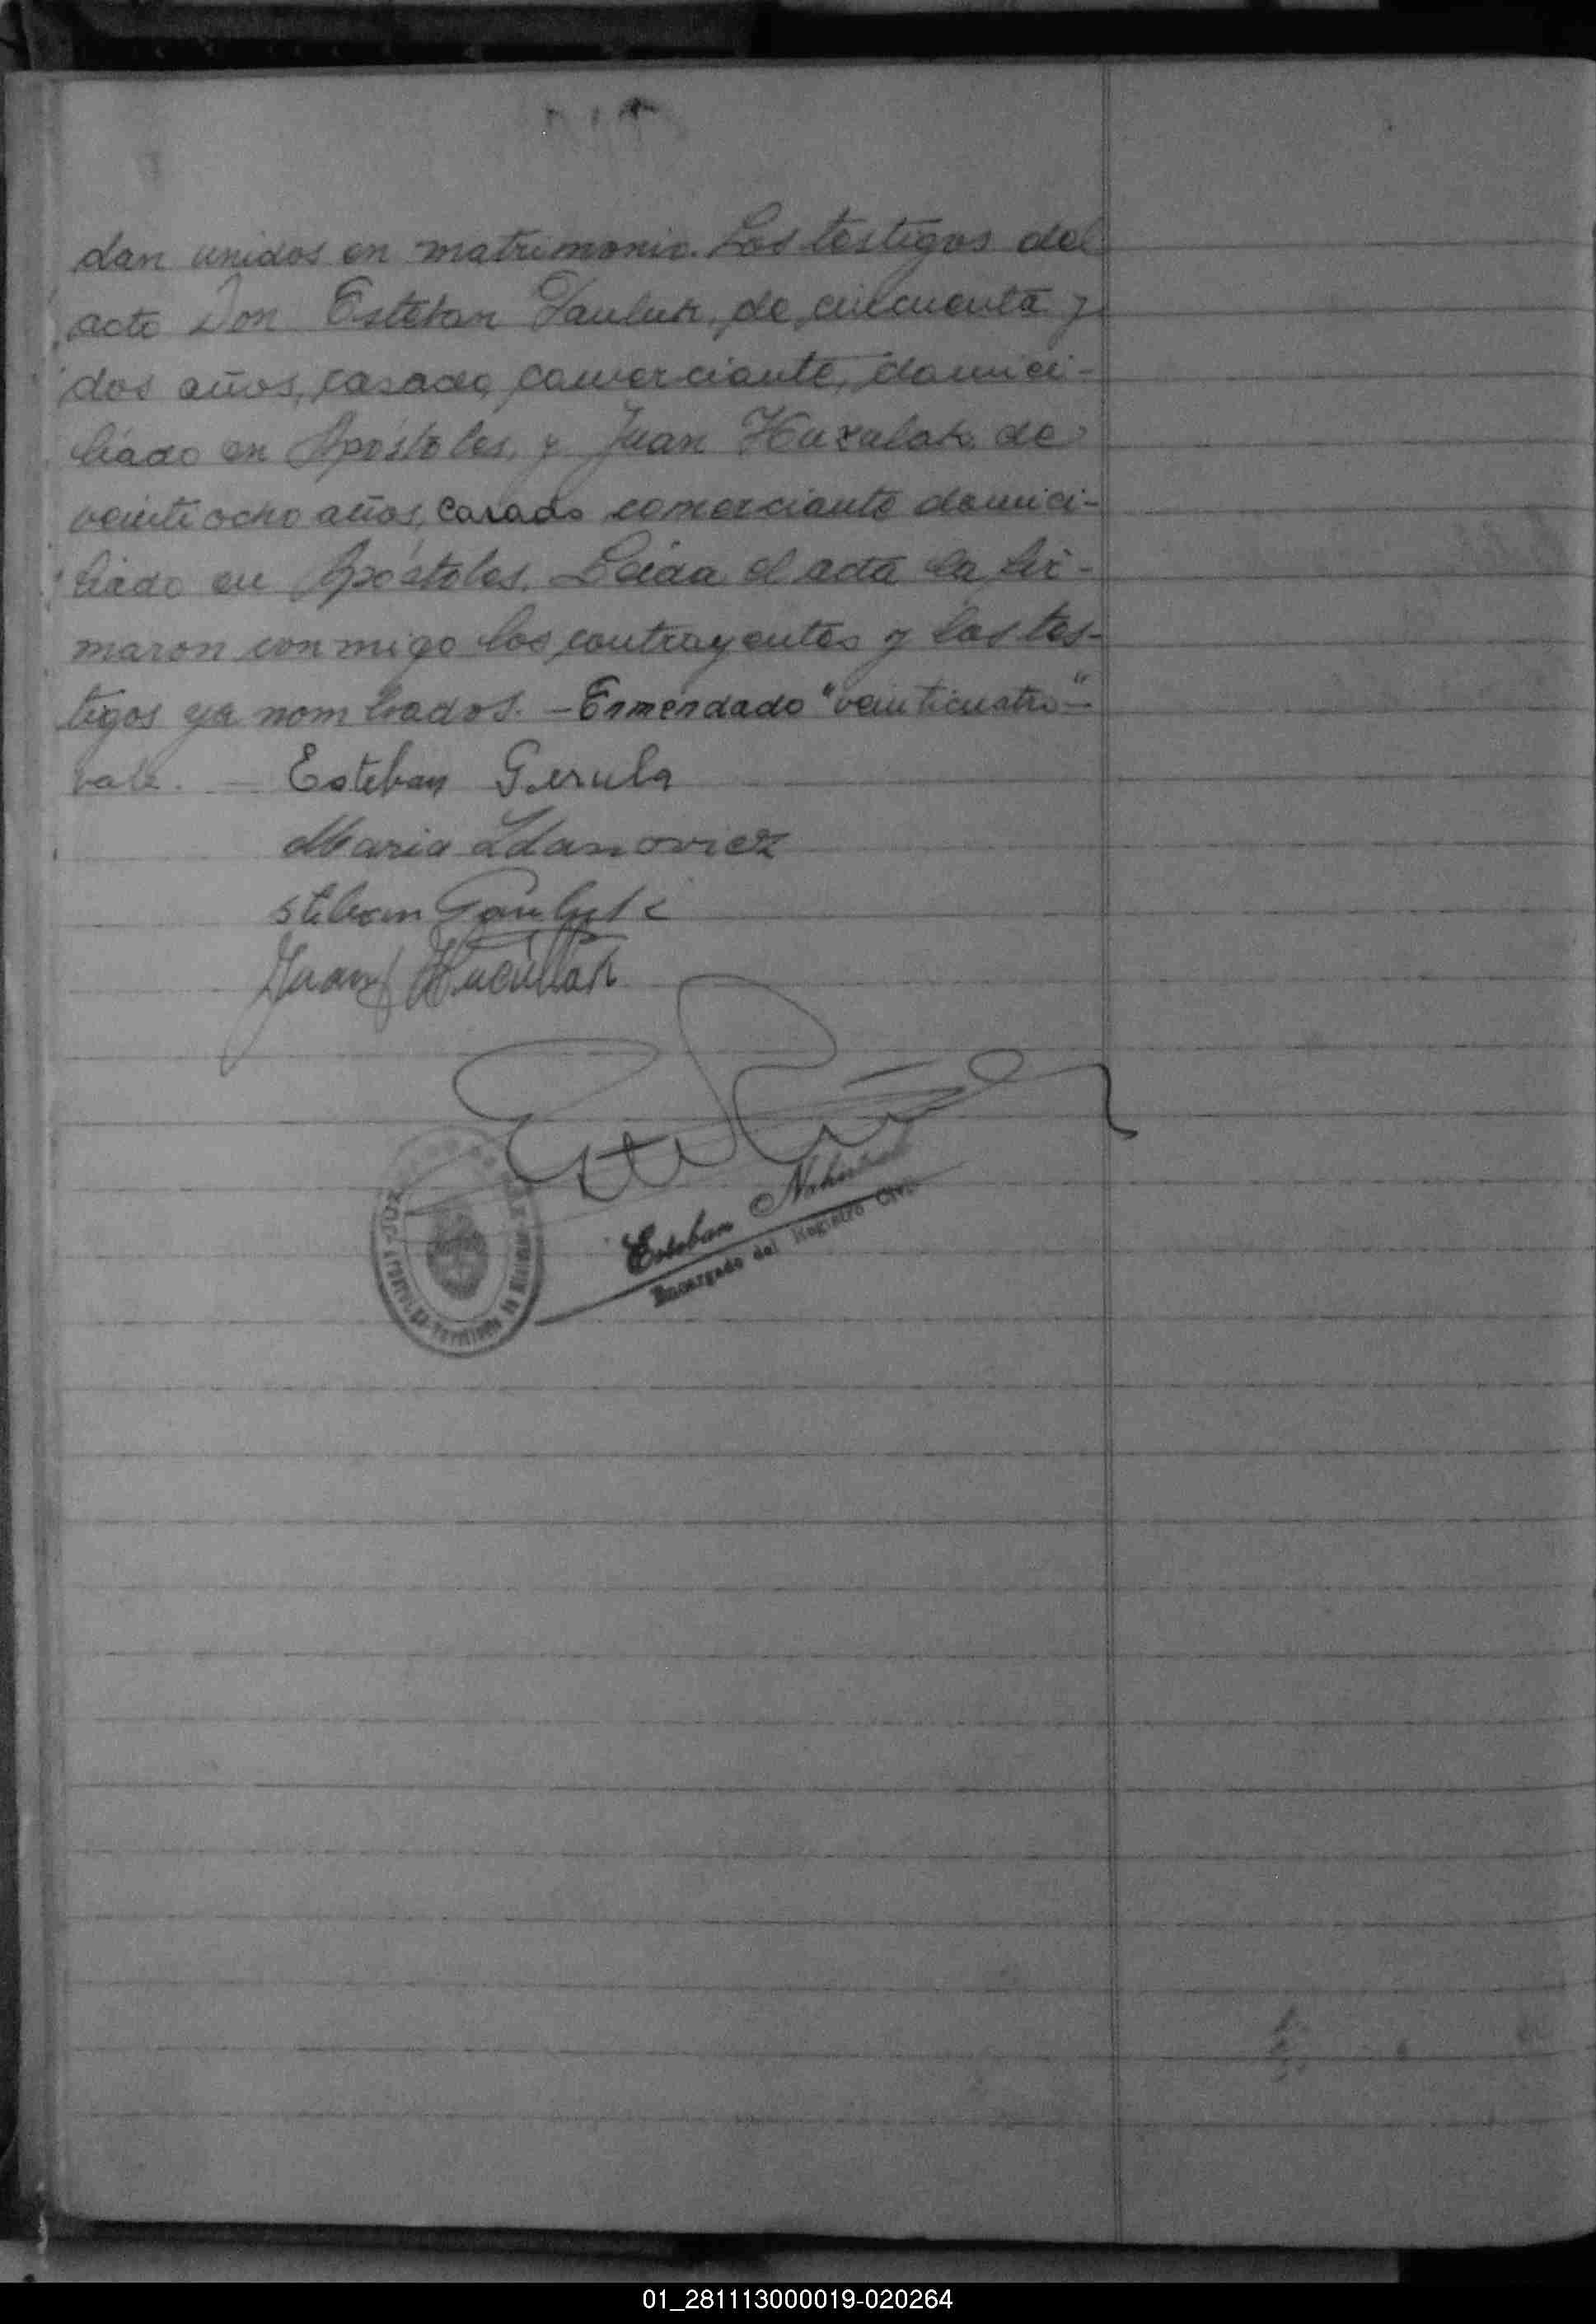 dan unidos en matrimonio. Los testigos del
acto Don Esteban Pauluk, de cincuenta y
dos años, casado, comerciante, domici-
liado en Apóstoles, y Juan Huzulak de
veintiocho años, casado comerciante domici-
liado en Apóstoles. Leida el acta la fir-
maron conmigo los contrayentes y los tes-
tigos ya nombrados. - Enmendado "veinticuatro"-
vale. - Esteban Gerula
Maria Zdanovicz
Juan Hucullak
Esteban
Encargado del Registro Civil
Territorio de Misiones
01_281113000019-020264